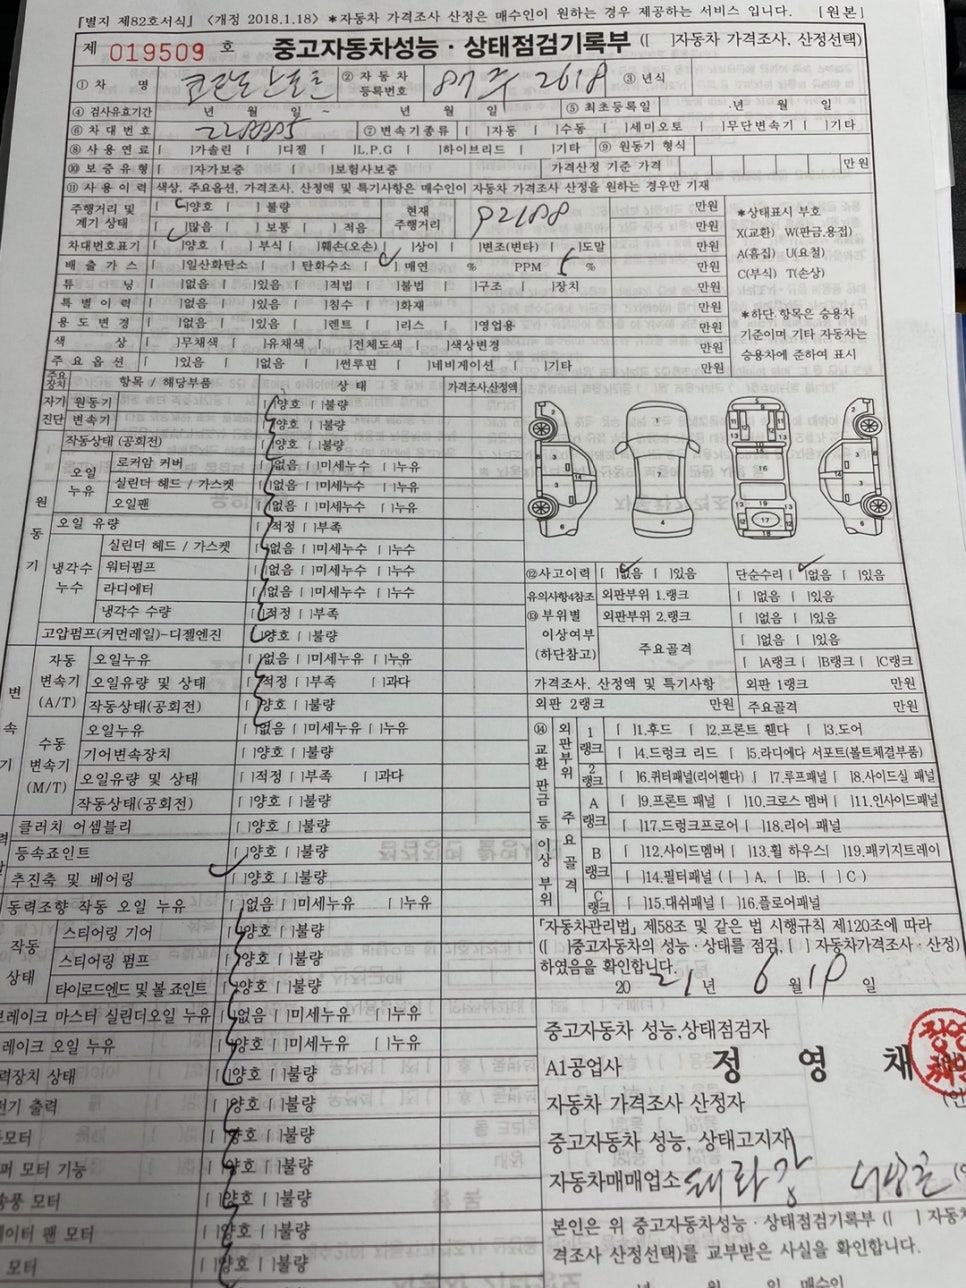 [별지 제82호서식] 〈개정 2018.1.18〉 ※자동차 가격조사 산정은 매수인이 원하는 경우 제공하는 서비스 입니다. [원본]
제 019509 호 중고자동차성능·상태점검기록부([ ]자동차 가격조사, 산정선택)
① 차 명 코란도스포츠 ② 자동차 등록번호 87주 2618 ③ 년식
④ 검사유효기간 년 월 일 ~ 년 월 일 ⑤ 최초등록일 년 월 일
⑥ 차대번호 ⑦ 변속기종류 [ ]자동 [ ]수동 [ ]세미오토 [ ]무단변속기 [ ]기타
⑧ 사용연료 [ ]가솔린 [ ]디젤 [ ]L.P.G [ ]하이브리드 [ ]기타 ⑨ 원동기 형식
⑩ 보증유형 [ ]자가보증 [ ]보험사보증 가격산정 기준 가격 만원
⑪ 사용이력 색상, 주요옵션, 가격조사, 산정액 및 특기사항은 매수인이 자동차 가격조사 산정을 원하는 경우만 기재
주행거리 및 계기 상태 [✓]양호 [ ]불량 현재 주행거리 92188 만원
[✓]많음 [ ]보통 [ ]적음 만원
차대번호표기 [ ]양호 [ ]부식 [ ]훼손(오손) [ ]상이 [ ]변조(변타) [ ]도말 만원
배출가스 [ ]일산화탄소 [ ]탄화수소 [✓]매연 % PPM 5 % 만원
튜닝 [ ]없음 [ ]있음 [ ]적법 [ ]불법 [ ]구조 [ ]장치 만원
특별이력 [ ]없음 [ ]있음 [ ]침수 [ ]화재 만원
용도변경 [ ]없음 [ ]있음 [ ]렌트 [ ]리스 [ ]영업용 만원
색상 [ ]무채색 [ ]유채색 [ ]전체도색 [ ]색상변경 만원
주요옵션 [ ]있음 [ ]없음 [ ]썬루프 [ ]네비게이션 [ ]기타 만원
※상태표시 부호
X(교환) W(판금,용접)
A(흠집) U(요철)
C(부식) T(손상)
※하단 항목은 승용차
기준이며 기타 자동차는
승용차에 준하여 표시
주요장치 항목 / 해당부품 상태 가격조사,산정액
자기진단 원동기 [ ]양호 [ ]불량
변속기 [ ]양호 [ ]불량
원동기 작동상태 (공회전) [ ]양호 [ ]불량
오일누유 로커암 커버 [ ]없음 [ ]미세누수 [ ]누유
실린더 헤드 / 가스켓 [ ]없음 [ ]미세누수 [ ]누유
오일팬 [ ]없음 [ ]미세누수 [ ]누유
오일 유량 [ ]적정 [ ]부족
냉각수누수 실린더 헤드 / 가스켓 [ ]없음 [ ]미세누수 [ ]누수
워터펌프 [ ]없음 [ ]미세누수 [ ]누수
라디에터 [ ]없음 [ ]미세누수 [ ]누수
냉각수 수량 [ ]적정 [ ]부족
고압펌프(커먼레일)-디젤엔진 [ ]양호 [ ]불량
변속기 자동변속기(A/T) 오일누유 [ ]없음 [ ]미세누유 [ ]누유
오일유량 및 상태 [ ]적정 [ ]부족 [ ]과다
작동상태(공회전) [ ]양호 [ ]불량
수동변속기(M/T) 오일누유 [ ]없음 [ ]미세누유 [ ]누유
기어변속장치 [ ]양호 [ ]불량
오일유량 및 상태 [ ]적정 [ ]부족 [ ]과다
작동상태(공회전) [ ]양호 [ ]불량
클러치 어셈블리 [ ]양호 [ ]불량
등속죠인트 [✓]양호 [ ]불량
추진축 및 베어링 [ ]양호 [ ]불량
동력조향 작동 오일 누유 [ ]없음 [ ]미세누유 [ ]누유
작동상태 스티어링 기어 [ ]양호 [ ]불량
스티어링 펌프 [ ]양호 [ ]불량
타이로드엔드 및 볼 죠인트 [ ]양호 [ ]불량
브레이크 마스터 실린더오일 누유 [ ]없음 [ ]미세누유 [ ]누유
레이크 오일 누유 [ ]양호 [ ]미세누유 [ ]누유
력장치 상태 [ ]양호 [ ]불량
전기 출력 [ ]양호 [ ]불량
모터 [ ]양호 [ ]불량
퍼 모터 기능 [ ]양호 [ ]불량
송풍 모터 [ ]양호 [ ]불량
에이터 팬 모터 [ ]양호 [ ]불량
모터 [ ]양호 [ ]불량
⑫사고이력 [✓]없음 [ ]있음 단순수리 [✓]없음 [ ]있음
유의사항4참조 외판부위 1.랭크 [ ]없음 [ ]있음
⑬ 부위별 이상여부 (하단참고) 외판부위 2.랭크 [ ]없음 [ ]있음
주요골격 [ ]없음 [ ]있음
[ ]A랭크 [ ]B랭크 [ ]C랭크
가격조사, 산정액 및 특기사항 외판 1랭크 만원
외판 2랭크 만원 주요골격 만원
⑭ 교환 판금 등 이상 부위
외판부위 1랭크 [ ]1.후드 [ ]2.프론트 휀다 [ ]3.도어
[ ]4.드렁크 리드 [ ]5.라디에다 서포트(볼트체결부품)
2랭크 [ ]6.쿼터패널(리어휀다) [ ]7.루프패널 [ ]8.사이드실 패널
주요골격 A랭크 [ ]9.프론트 패널 [ ]10.크로스 멤버 [ ]11.인사이드패널
[ ]17.드렁크프로어 [ ]18.리어 패널
B랭크 [ ]12.사이드멤버 [ ]13.휠 하우스 [ ]19.패키지트레이
[ ]14.필터패널 ([ ]A, [ ]B, [ ]C)
C랭크 [ ]15.대쉬패널 [ ]16.플로어패널
「자동차관리법」 제58조 및 같은 법 시행규칙 제120조에 따라
([ ]중고자동차의 성능·상태를 점검, [ ]자동차가격조사·산정)
하였음을 확인합니다.
2021년 6월 19일
중고자동차 성능,상태점검자
A1공업사 정영채
자동차 가격조사 산정자
중고자동차 성능, 상태고지자
자동차매매업소
본인은 위 중고자동차성능·상태점검기록부([ ]자동차
격조사 산정선택)를 교부받은 사실을 확인합니다.
년 월 일 매수인